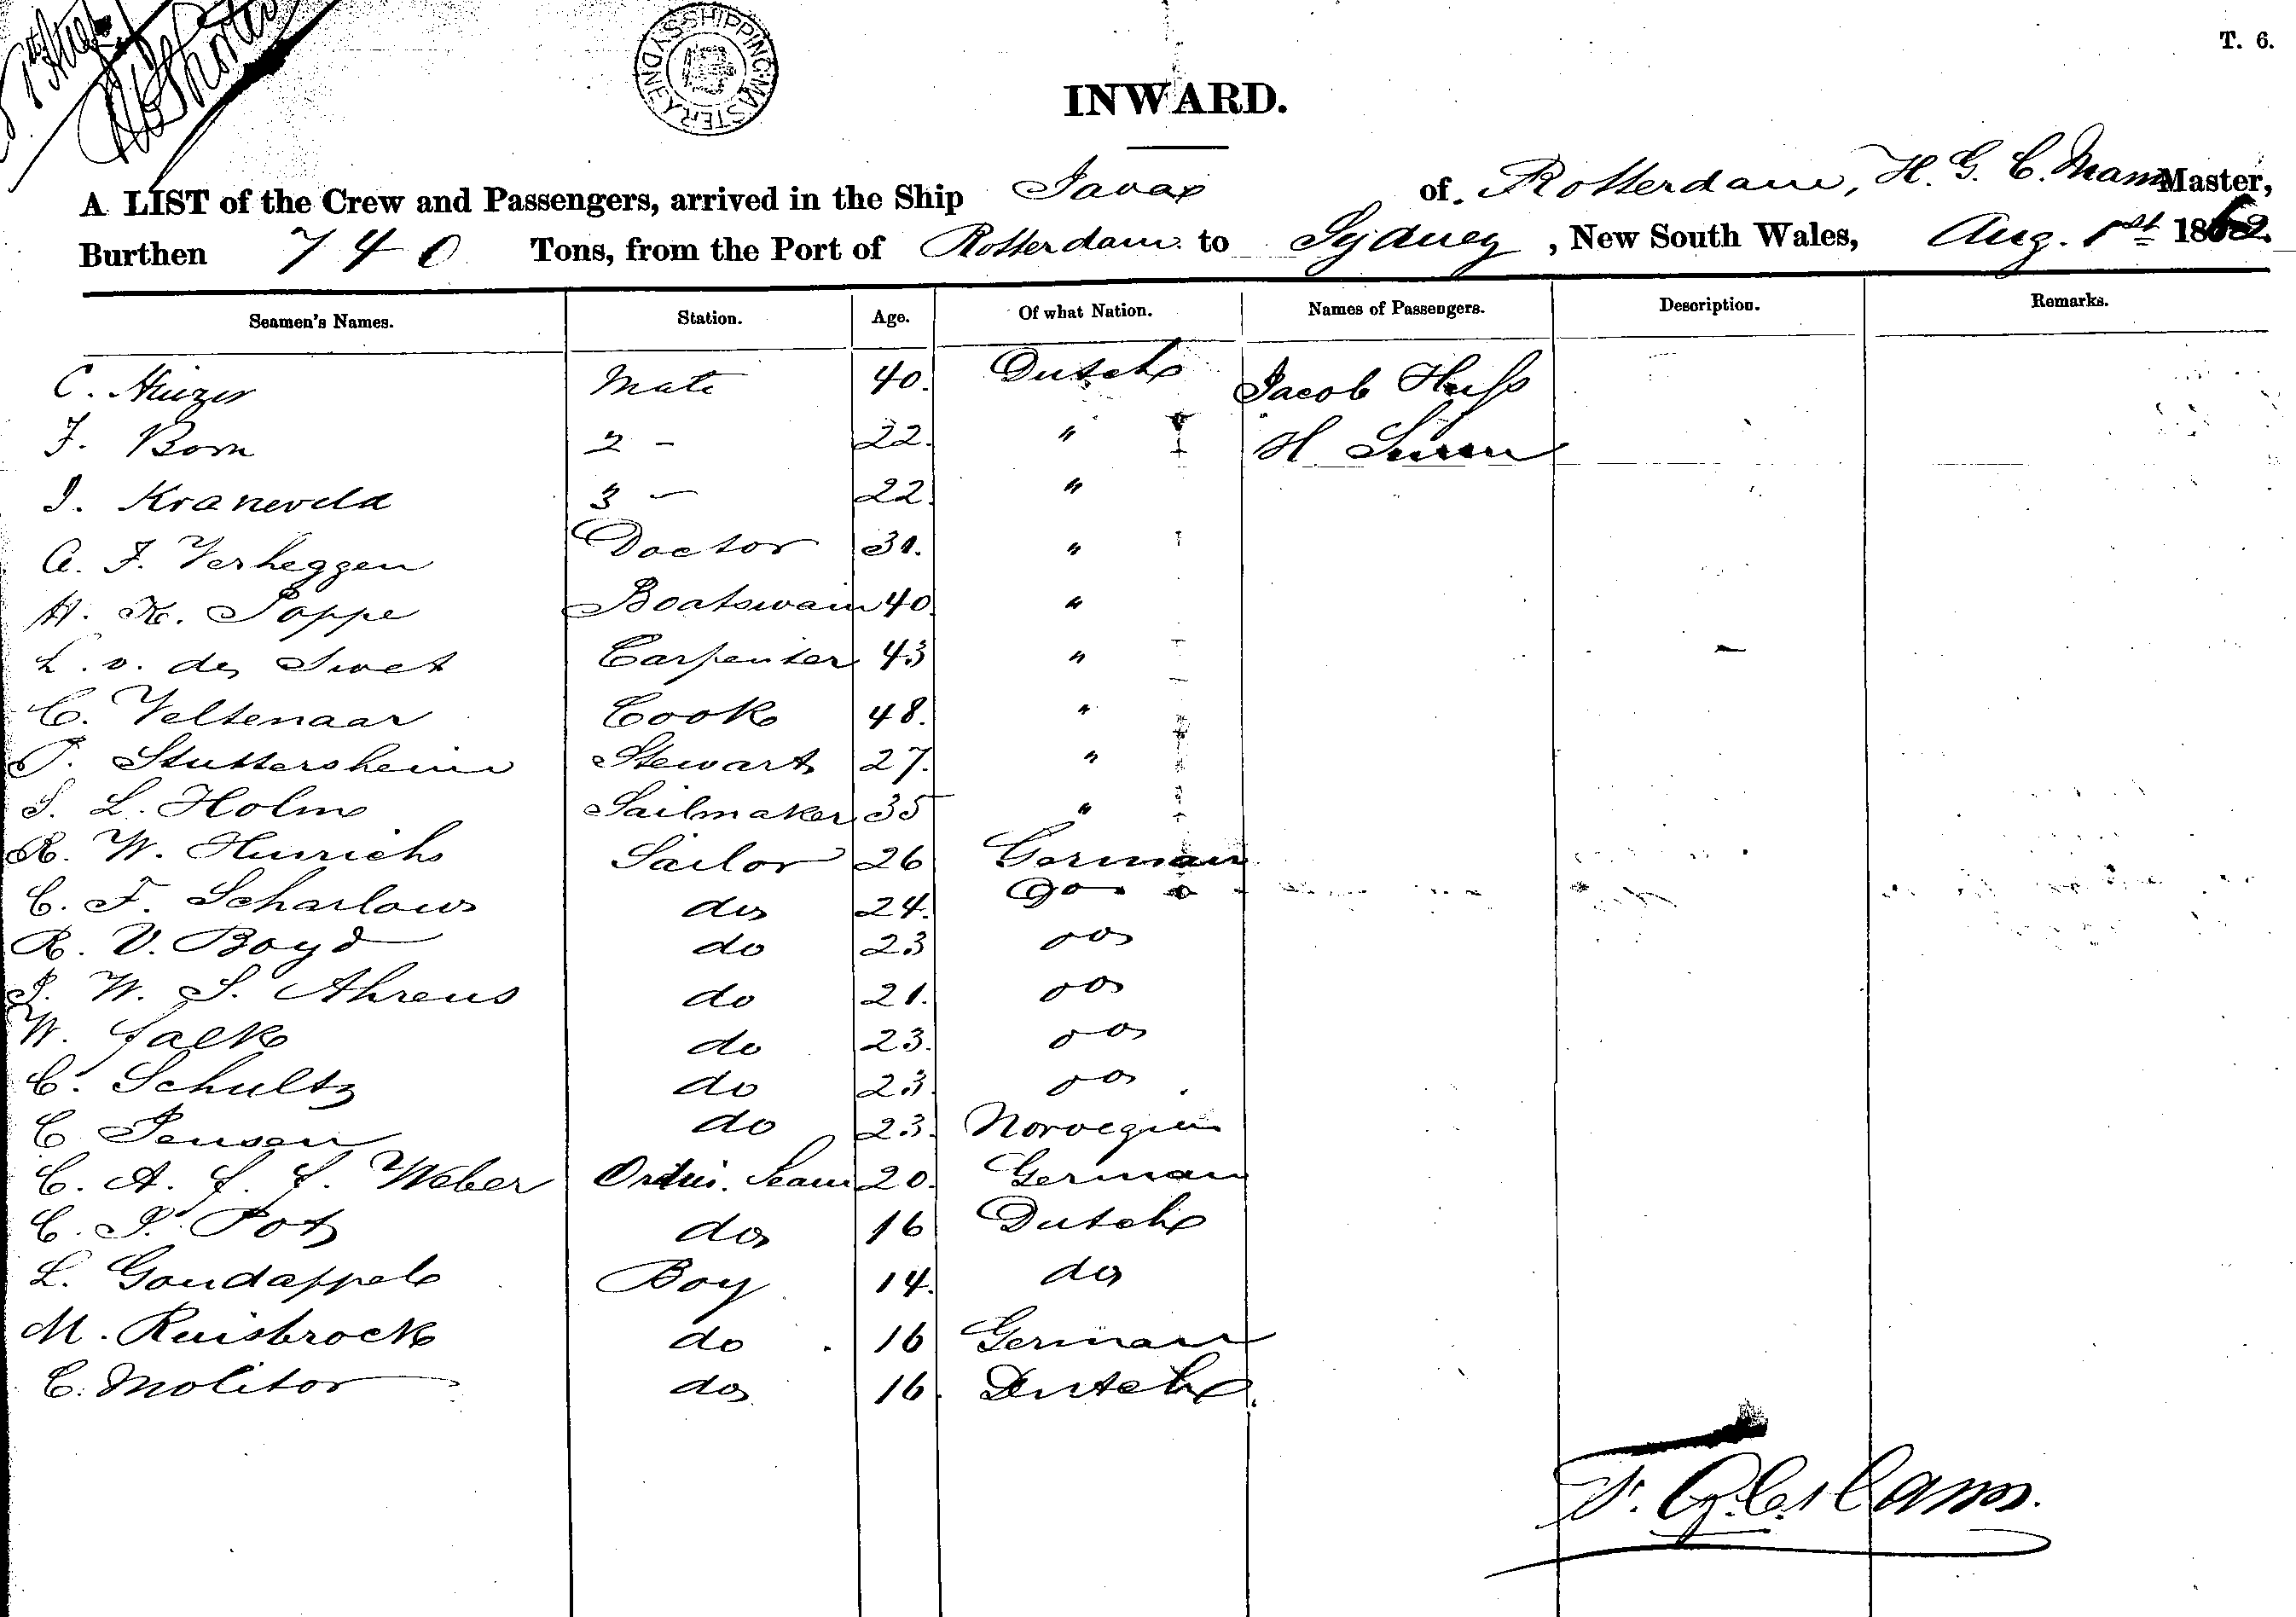 T. 6.
SYDNEY SHIPPING MASTER
INWARD.
A LIST of the Crew and Passengers, arrived in the Ship Java of Rotterdam, H. G. C. Mann Master,
Burthen 740 Tons, from the Port of Rotterdam to Sydney, New South Wales, Aug. 1st 1862.
Seamen's Names. Station. Age. Of what Nation. Names of Passengers. Description. Remarks.
C. Mate 40. Dutch Jacob Huss
F. Born 2 - 22. " H.
J. Kraneveld 3 - 22. "
A. F. Verheggen Doctor 31. "
H. K. Poppe Boatswain 40. "
L. v. der Swet Carpenter 43 "
C. Veltenaar Cook 48. "
P. Stuttersheim Stewart 27. "
S. L. Holm Sailmaker 35 "
R. W. Hinrichs Sailor 26 German
C. F. Scharlow do 24. Do
R. V. Boyd do 23 do
J. W. S. Ahrens do 21. do
W. Falk do 23. do
C. Schultz do 23. do
C. Jensen do 23. Norvegian
C. A. f. f. Weber Ordin. Seam 20. German
C. P. Pot do 16 Dutch
L. Goudappel Boy 14. do
M. Ruisbrock do 16 German
C. Molitor do 16. Dutch